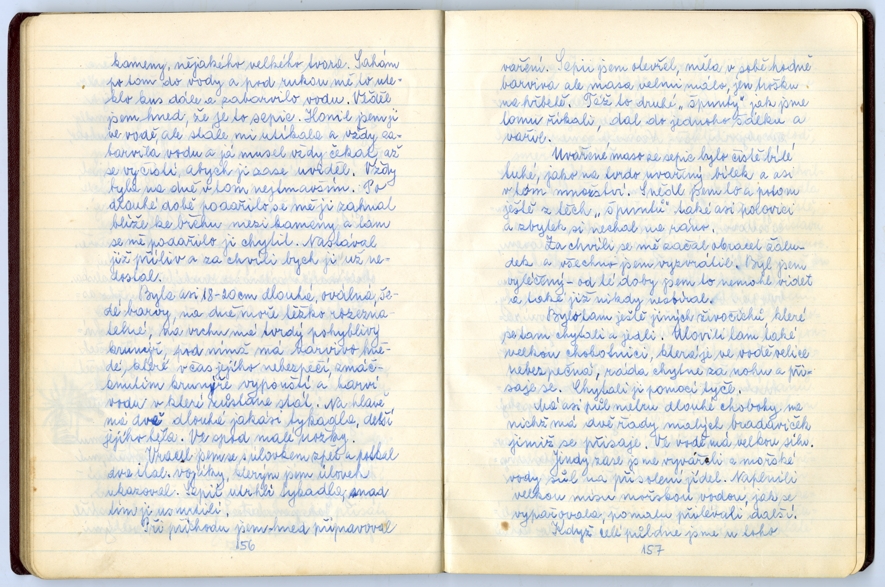 kameny, nějakého velkého tvora. Sahám
po tom do vody a pod rukou mě to ute-
klo kus dále a zabarvilo vodu. Věděl
jsem hned, že je to sepie. Honil jsem ji
ve vodě, ale stále mi utíkala a vždy za-
barvila vodu a já musel vždy čekat, až
se vyčistí, abych ji zase uviděl. Vždy
byla na dně v tom nejtmavším. Po
dlouhé době podařilo se mě ji zahnat
blíže ke břehu mezi kameny a tam
se mě podařilo ji chytit. Nastával
již příliv a za chvíli bych ji už ne-
dostal.
Byla asi 18-20cm dlouhá, oválná, še-
dé barvy, na dně moře těžko rozezna-
telná, na vrchu má tvrdý pohyblivý
krunýř, pod nímž má barvivo hně-
dé, které v čas jejího nebezpečí, smáč-
knutím krunýře vypouští a barví
vodu v které zůstane stát. Na hlavě
má dvě dlouhá jakási tykadla, delší
jejího těla. Ve spod malé nožky.
Vracel jsem se s úlovkem zpět a potkal
dva ital. vojíky, kterým jsem úlovek
ukazoval. Sepii utrhli tykadla, snad
tím ji usmrtili.
Při příchodu jsem hned připravoval
156
vaření. Sepii jsem otevřel, měla v sobě hodně
barviva ale masa velmi málo, jen trošku
na hřbetě. Též to druhé „špunty" jak jsme
tomu říkali, dal do jednoho ešusu a
vařil.
Uvařené maso ze sepie bylo čistě bílé
tuhé, jako na tvrdo uvařený bílek a asi
v tom množství. Snědl jsem to a potom
ještě z těch „špuntů" také asi polovici
a zbytek si nechal na ráno.
Za chvíli se mě začal obracet žalu-
dek a všechno jsem vyzvrátil. Byl jsem
vyléčený - od té doby jsem to nemohl vidět
a také již nikdy nesbíral.
Bylo tam ještě jiných živočichů které
se tam chytali a jedli. Ulovili tam také
velkou chobotnici, která je ve vodě velice
nebezpečná, ráda chytne za nohu a při-
saje se. Chytali ji pomocí tyče.
Má asi půl metru dlouhé choboty, na
nichž má dvě řady malých bradaviček
jimiž se přisaje. Ve vodě má velkou sílu.
Jindy zase jsme vyvářeli z mořské
vody sůl na přisolení jídel. Naplnili
velkou mísu mořskou vodou, jak se
vypařovala, pomalu přilévali další.
Když celé půldne jsme u toho
157